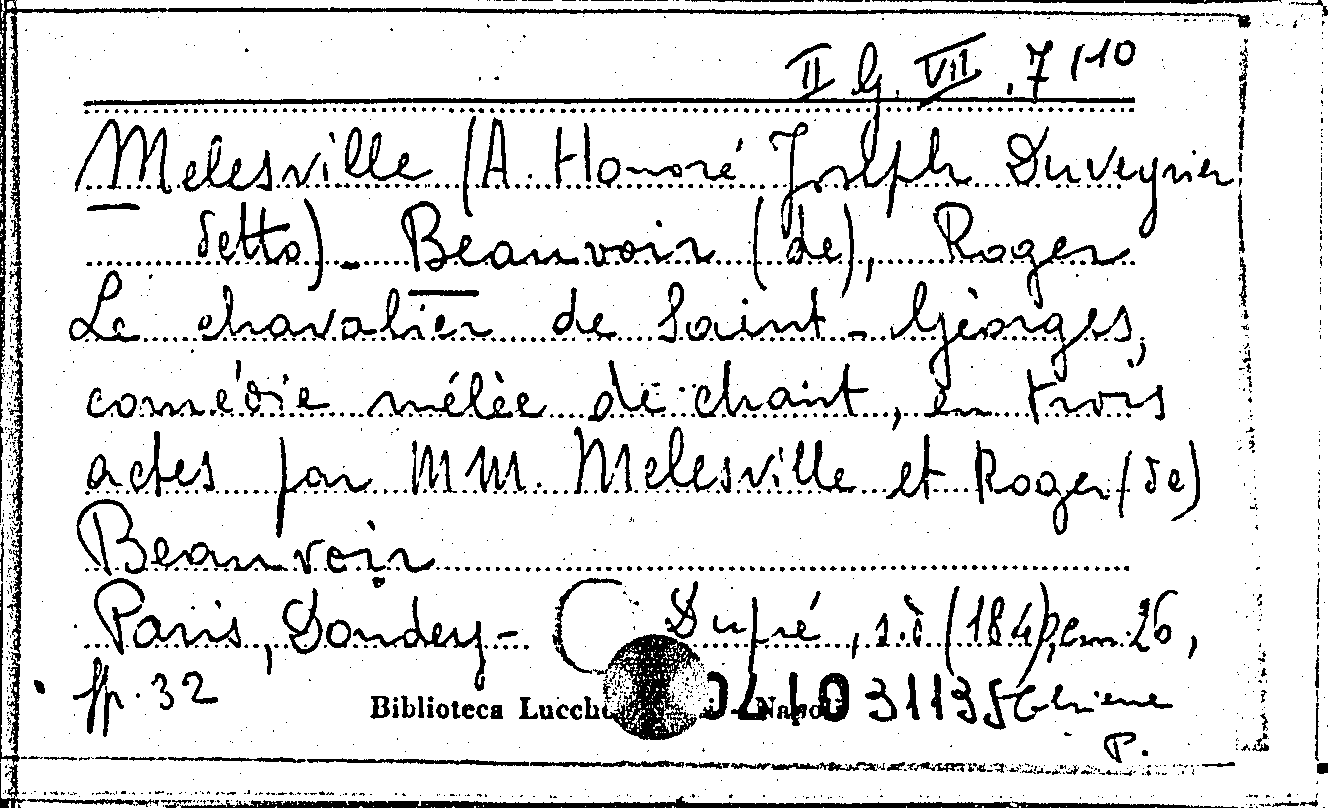 II G. VII .7/10
Melesville (A. Honoré Joseph Duveyrier
detto) - Beauvoir (de), Roger
Le chavalier de Saint-Géorges,
comédie mélée de chant, en trois
actes par MM. Melesville et Roger (de)
Beauvoir
Paris, Dondey- Dupré, s.d (184), cm. 26,
pp. 32
Biblioteca Lucch - Napoli 0410 31135
P.